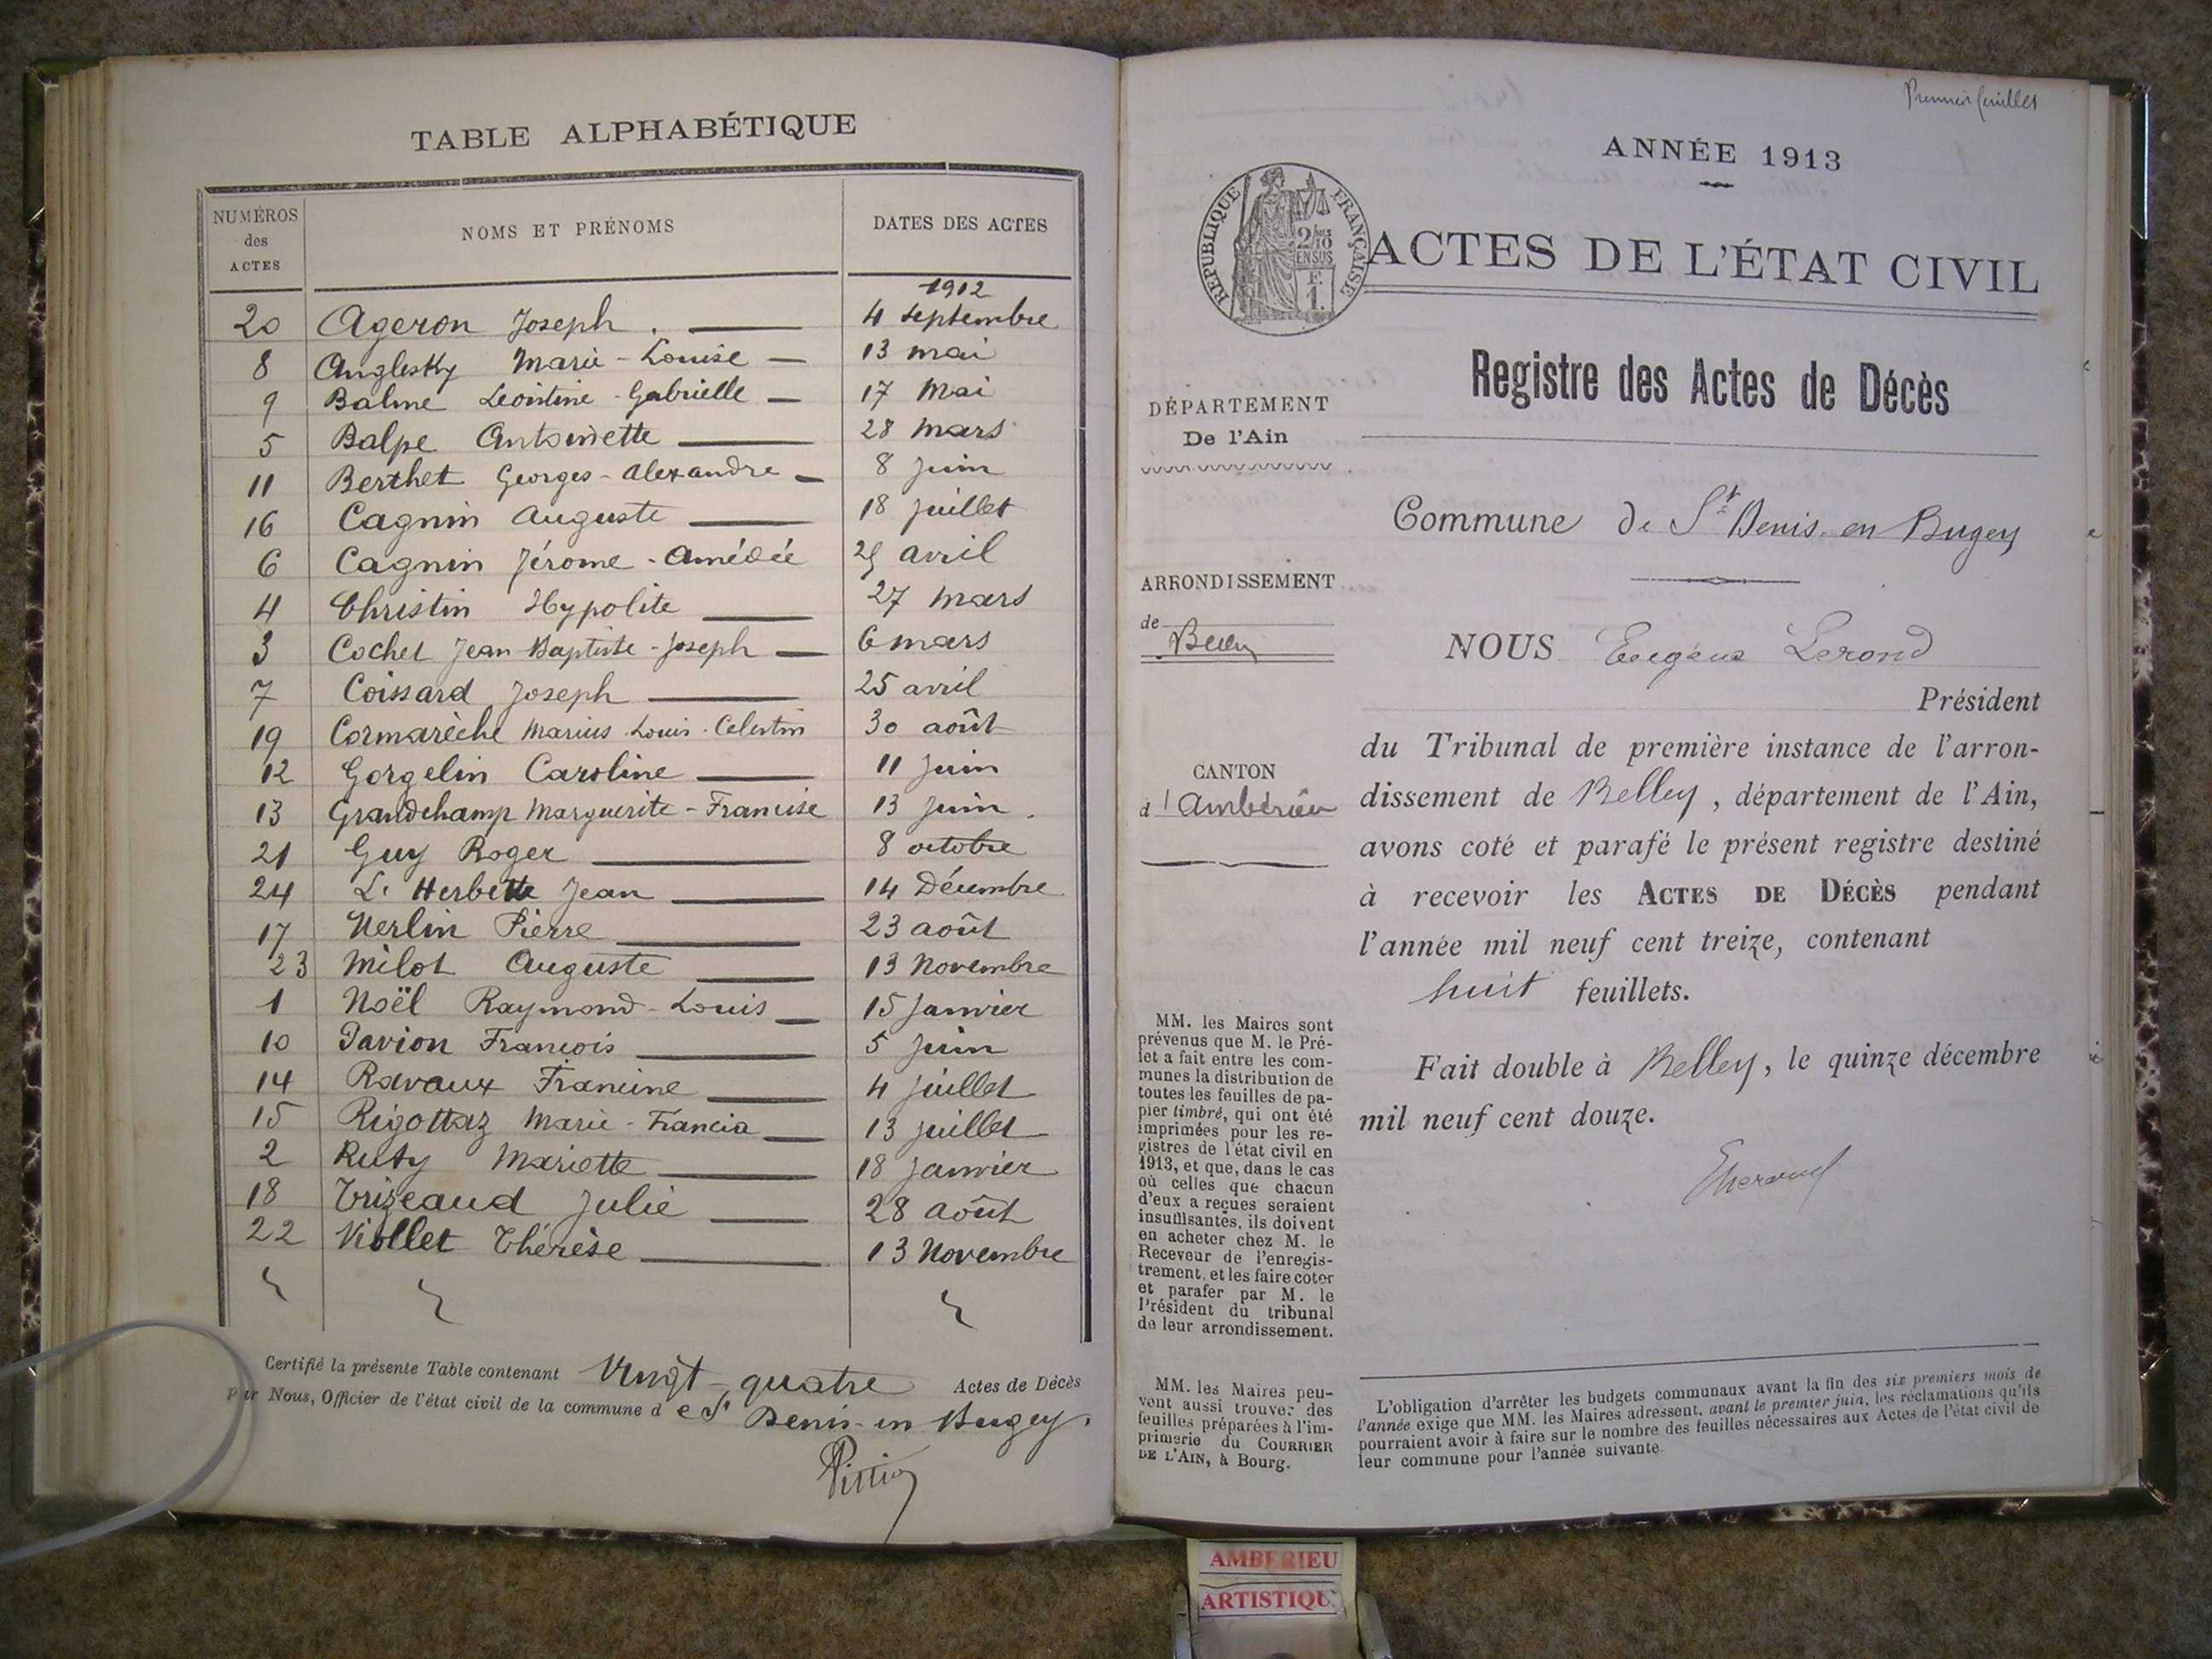 TABLE ALPHABÉTIQUE
NUMÉROS des ACTES NOMS ET PRÉNOMS DATES DES ACTES
1912
20 Ageron Joseph 4 Septembre
8 Anglesky Marie-Louise 13 mai
9 Balme Léontine-Gabrielle 17 Mai
5 Balpe Antoinette 28 mars
11 Berthet Georges-Alexandre 8 Juin
16 Cagnin Auguste 18 Juillet
6 Cagnin Jérome-Amédée avril
4 Christin Hypolite 27 mars
3 Cochet Jean-Baptiste-Joseph 6 mars
7 Coissard Joseph 25 avril
19 Cormarèche Marius Louis-Celestin 30 août
12 Gorgelin Caroline 11 Juin
13 Grandchamp Marguerite-Francise 13 Juin
21 Guy Roger 8 octobre
24 L'Herbette Jean 14 Décembre
17 Merlin Pierre 23 août
23 Milot Auguste 13 Novembre
1 Noël Raymond-Louis 15 Janvier
10 Pavion Francois 5 Juin
14 Ravaux Francine 4 Juillet
15 Rigottaz Marie-Francia 13 Juillet
2 Ruty Mariette 18 Janvier
18 Trizeaud Julie 28 août
22 Viollet Thérèse 13 Novembre
Certifié la présente Table contenant Vingt-quatre Actes de Décès
par Nous, Officier de l'état civil de la commune de St Denis-en Bugey.
Premier feuillet
ANNÉE 1913
RÉPUBLIQUE FRANÇAISE
2/10 EN SUS
F. 1.
ACTES DE L'ÉTAT CIVIL
Registre des Actes de Décès
DÉPARTEMENT
De l'Ain
Commune de St Denis-en Bugey
ARRONDISSEMENT
de
Belley
NOUS Eugène Lerond
Président
du Tribunal de première instance de l'arron-
dissement de Belley, département de l'Ain,
avons coté et parafé le présent registre destiné
à recevoir les ACTES DE DÉCÈS pendant
l'année mil neuf cent treize, contenant
huit feuillets.
Fait double à Belley, le quinze décembre
mil neuf cent douze.
CANTON
d'Ambérieu
MM. les Maires sont
prévenus que M. le Pré-
fet a fait entre les com-
munes la distribution de
toutes les feuilles de pa-
pier timbré, qui ont été
imprimées pour les re-
gistres de l'état civil en
1913, et que, dans le cas
où celles que chacun
d'eux a reçues seraient
insuffisantes, ils doivent
en acheter chez M. le
Receveur de l'enregis-
trement, et les faire coter
et parafer par M. le
Président du tribunal
de leur arrondissement.
MM. les Maires peu-
vent aussi trouver des
feuilles préparées à l'im-
primerie du COURRIER
DE L'AIN, à Bourg.
L'obligation d'arrêter les budgets communaux avant la fin des six premiers mois de
l'année exige que MM. les Maires adressent, avant le premier juin, les réclamations qu'ils
pourraient avoir à faire sur le nombre des feuilles nécessaires aux Actes de l'état civil de
leur commune pour l'année suivante.
AMBERIEU
ARTISTIQUE